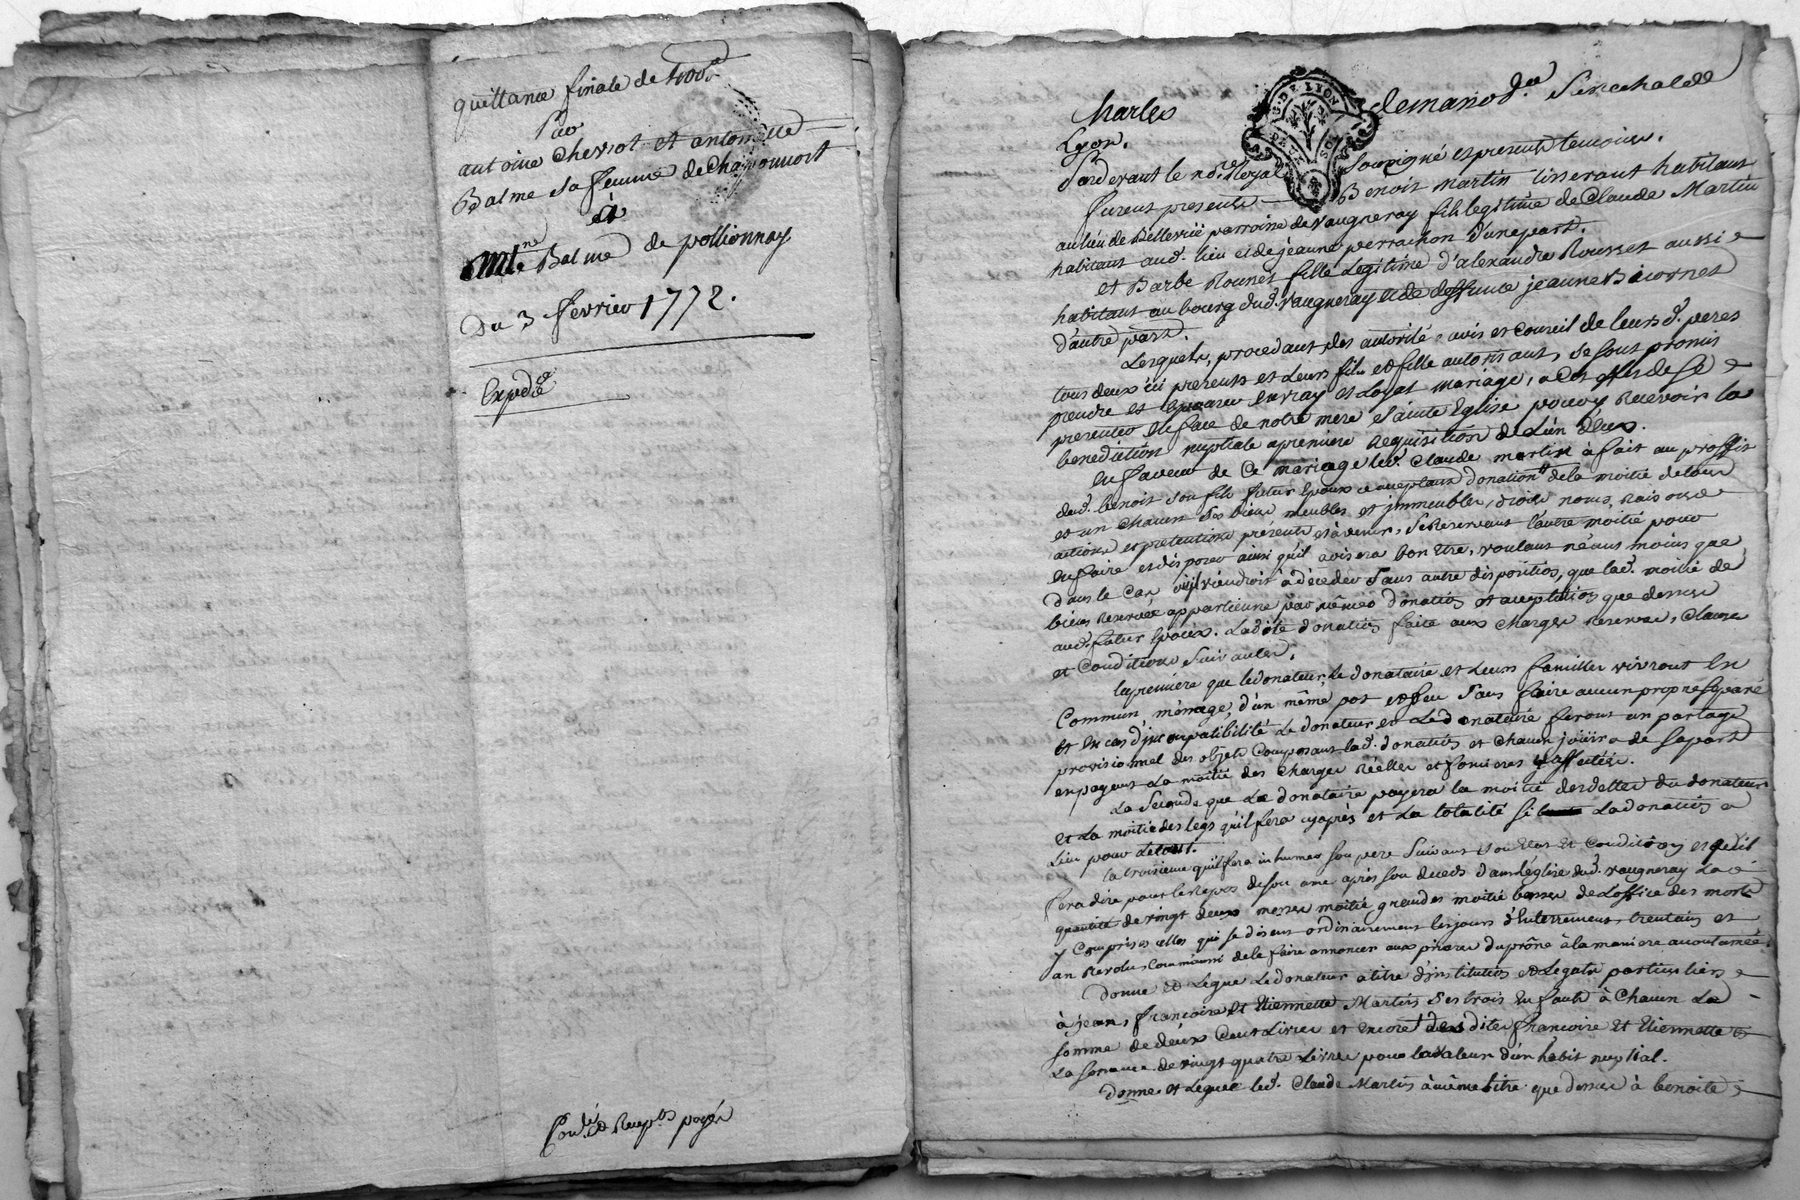 quittance finale de 1000#
Par
antoine Chevrot et antoinette
Balme sa femme de Chaponnost
à
Balme de pollionnay
Du 3 fevrier 1772.
Expdée
payés
Charles demariage Senechaleé
G. DE LYON
Lyon.
Pardevant le nore. Royal soussigné et presents temoins.
furent presents Benoit Martin tisserant habitant
au lieu de Bellevüe parroisse de vaugneray fils legitime de Claude Martin
habitant aud. lieu et de jeanne perrachon d'une part.
et Barbe Rousset fille Legitime d'alexandre Rousset aussi
habitant au bourg dud. vaugneray et de deffunte jeanne
d'autre part.
Lesquels, procedants des autorité, avis et Conseil de leurs d. peres
tous deux ici presents et Leurs fils et fille autorisants, se sont promis
prendre et Epouser en vray et Loyal mariage, a cet effet de se
presenter en face de notre mere sainte Eglise pour y Recevoir la
benediction nuptiale a premiere Requisition de L'un d'eux.
En faveur de Ce mariage led. Claude martin à fait au proffit
dud. benoit son fils futur Epoux acceptant donation de la moitié de tous
et un chacun ses biens meubles et jmmeubles, droits noms, Raisons
actions et pretentions présents et à venir, se Reservant l'autre moitié pour
en faire et disposer ainsi qu'il avisera bon Etre, voulant néant moins que
dans le Cas où il viendroit à déceder sans autre disposition, que lad. moitié de
biens Reservée appartienne par mêmes donation et acceptation que dessus
aud. futur Epoux. Ladite donation faite aux charges Reserves, Clauses
et Conditions suivantes.
la premiere que le donateur, le donataire et Leurs familles vivront En
Commun, ménage, d'un même pot et feu sans faire aucun propre separé
et En cas d'incompatibilité Le donateur et Le donataire feront un partage
provisionnel des objets Composant lad. donation et chacun joüira de sa part
en payant La moitié des charges Réelles et foncieres y affectées.
La Seconde que Le donataire payera la moitié des dettes du donateur
et La moitié des legs qu'il fera cyaprès et La totalité si La donation a
Lieu pour Le tout.
la troisieme qu'il fera inhumer son pere suivant son Etat Et Condition et qu'il
fera dire pour le Repos de son ame après son deceds dans l'église dud. vaugneray La
quantité de vingt deux messes moitié grandes moitié basses de L'office des morts
y Comprises celles qui se disent ordinairement les jours d'Enterrement, trentain et
an Revolu, Comm'aussi de le faire annoncer aux prieres du prône à la maniere accoutumée.
Donne et Legue Le donateur a titre d'institution et Legats particuliers
à jean, françoise et Etiennette Martin ses trois Enfants à Chacun La
somme de deux Cent Livres et encore des dites françoise Et Etiennette
La somme de vingt quatre Livres pour la valeur d'un habit nuptial.
Donne et Legue led. Claude Martin à même titre que dessus à benoite